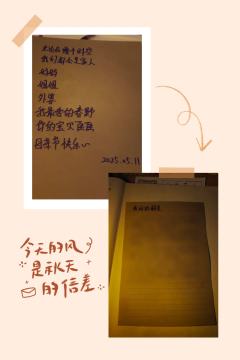 无论在哪个时空
我们都会是家人
妈妈
姐姐
外婆
我最爱的春野
你的宝贝
母亲节快乐
2025.05.11
今天的风
是秋天
的信差